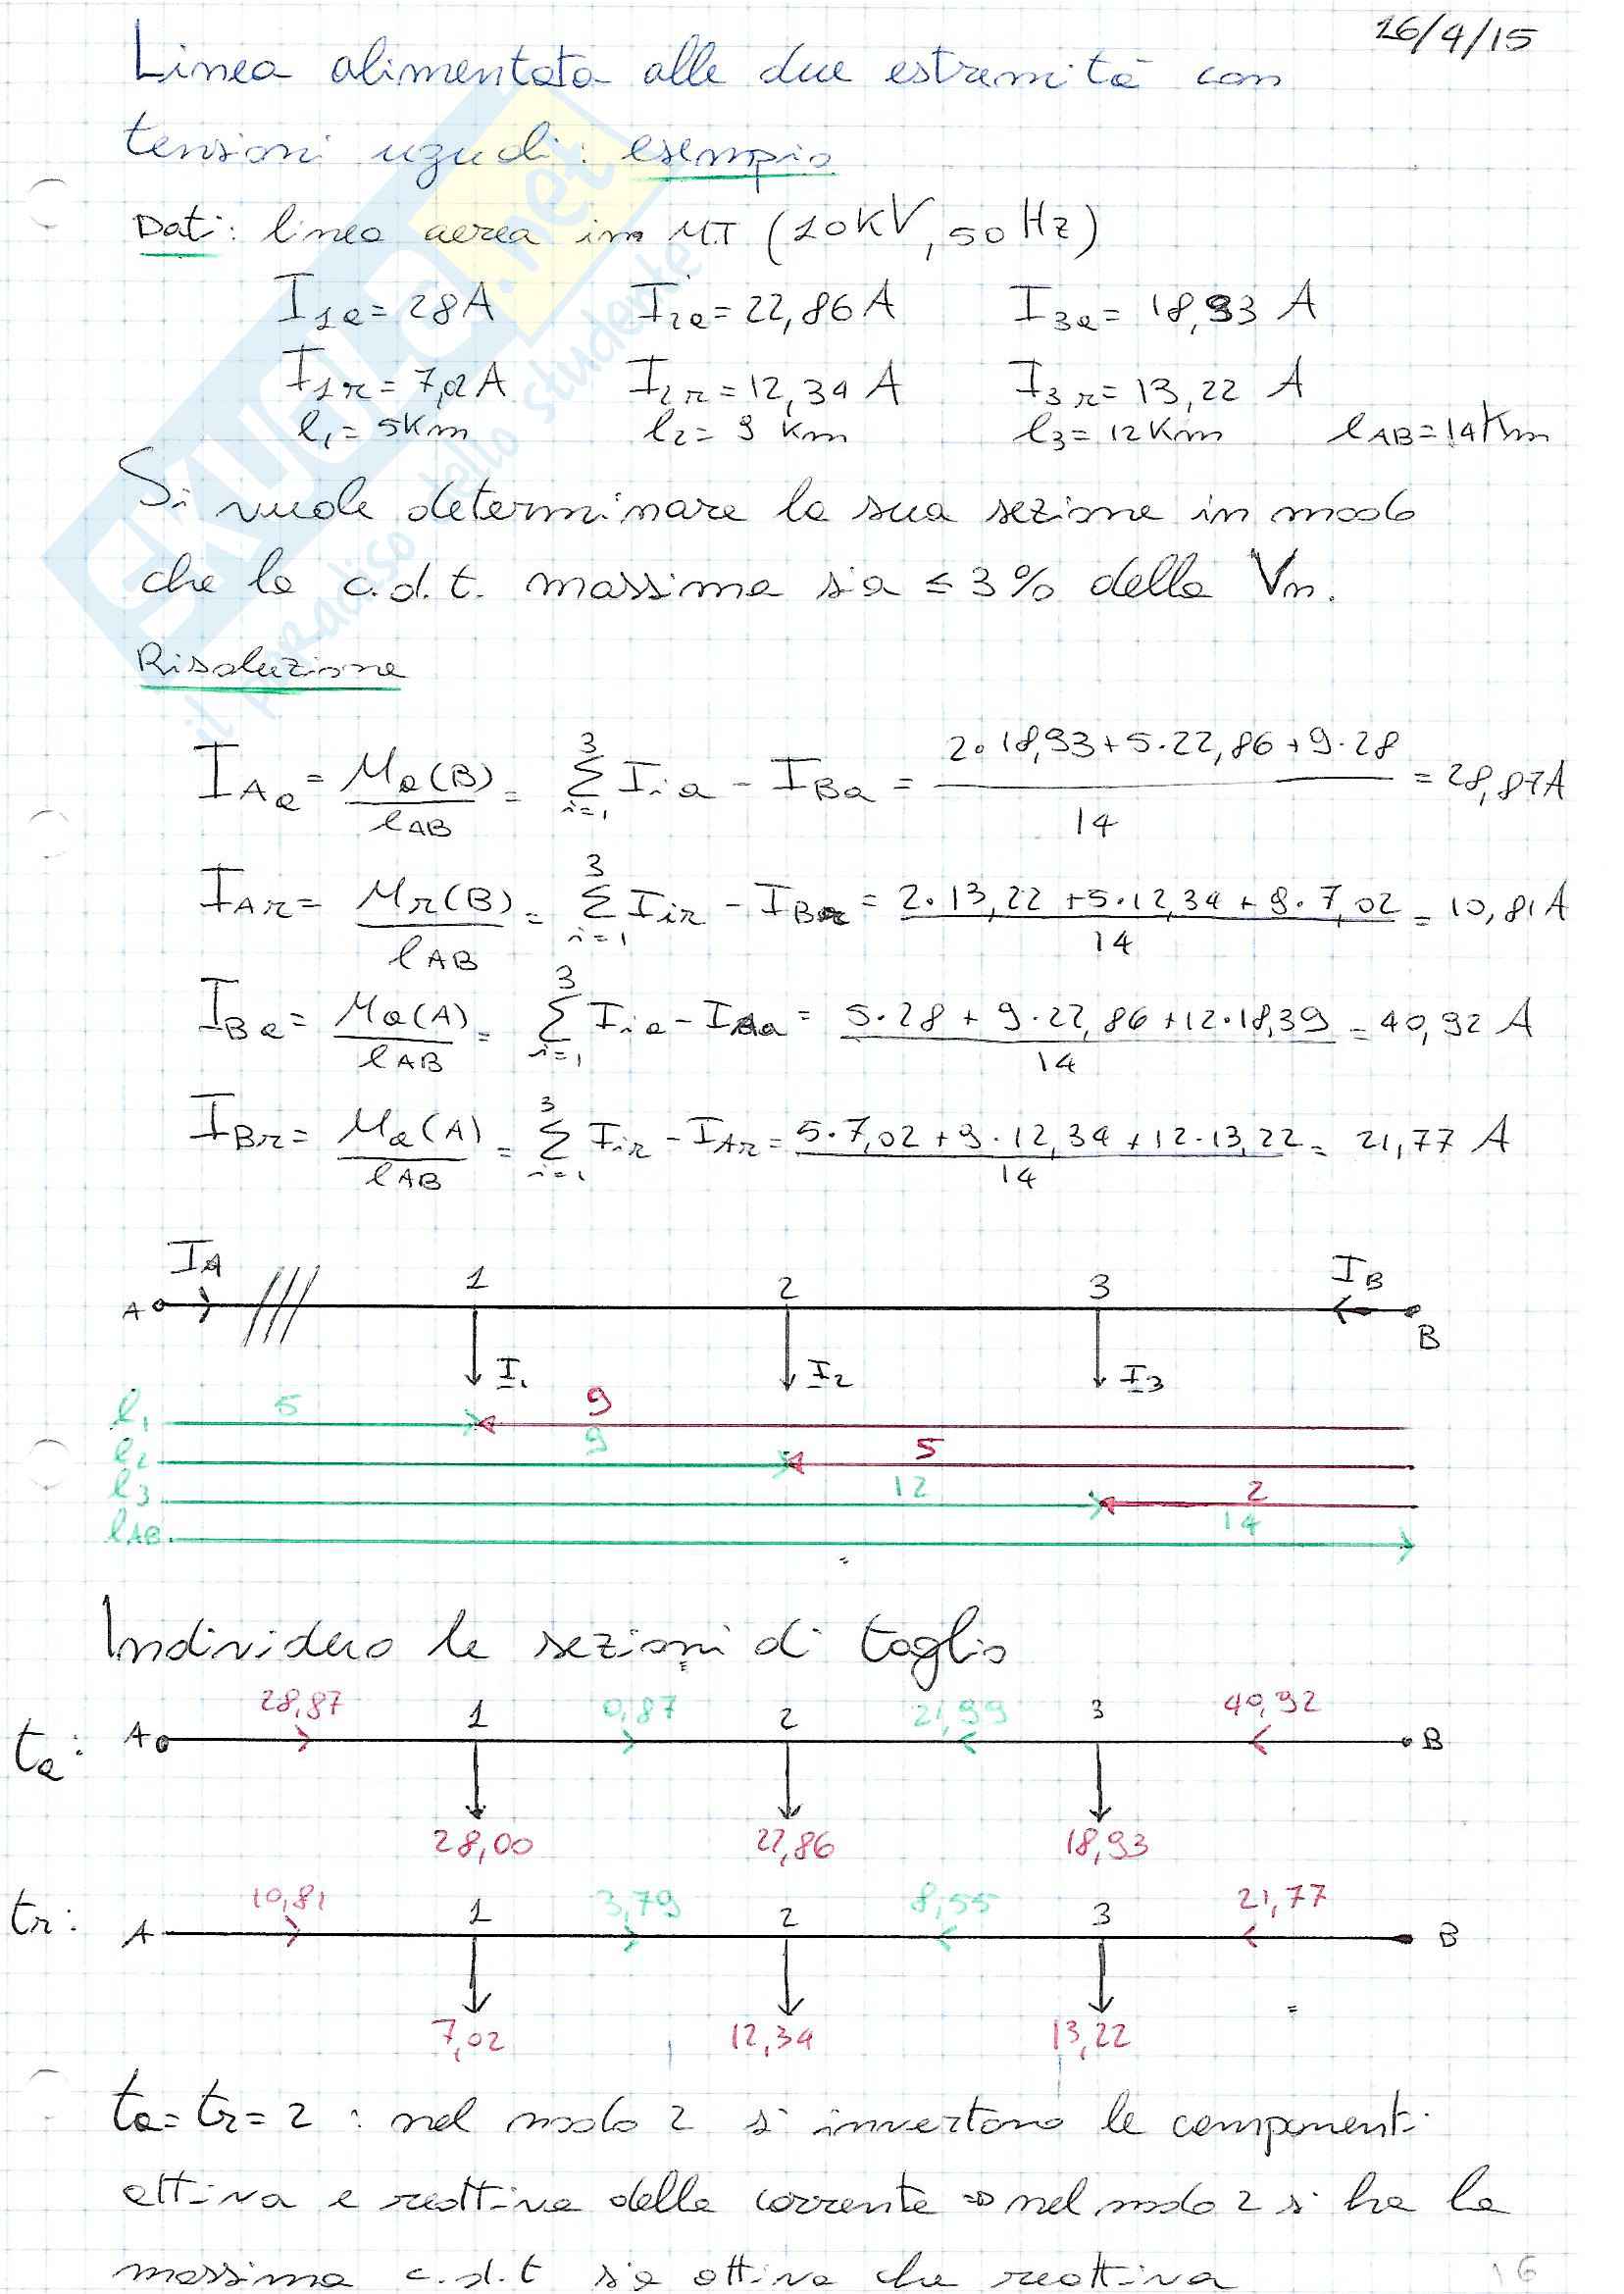 26/4/15
Linea alimentata alle due estremità con
tensioni uguali: esempio
Dati: linea aerea in MT (20KV, 50 Hz)
I1a = 28A I2a = 22,86 A I3a = 18,93 A
I1r = 7,02A I2r = 12,34 A I3r = 13,22 A
l1 = 5Km l2 = 9 Km l3 = 12Km lAB = 14Km
Si vuole determinare la sua sezione in modo
che la c.d.t. massima sia ≤ 3% della Vn.
Risoluzione
IAa = Ma(B)/lAB = 3Σi=1 Iia - IBa = (2·18,93+5·22,86+9·28)/14 = 28,87A
IAr = Mr(B)/lAB = 3Σi=1 Iir - IBr = (2·13,22+5·12,34+9·7,02)/14 = 10,81A
IBa = Ma(A)/lAB = 3Σi=1 Iia - IAa = (5·28+9·22,86+12·18,39)/14 = 40,92 A
IBr = Ma(A)/lAB = 3Σi=1 Iir - IAr = (5·7,02+9·12,34+12·13,22)/14 = 21,77 A
IA 1 2 3 IB
A B
I1 I2 I3
l1 5 9
l2 9 5
l3 12 2
lAB 14
Individuo le sezioni di taglio
28,87 1 0,87 2 21,99 3 40,92
ta: A B
28,00 22,86 18,93
10,81 1 3,79 2 8,55 3 21,77
tr: A B
7,02 12,34 13,22
ta = tr = 2 : nel nodo 2 si invertono le componenti
attiva e reattiva della corrente ⇒ nel nodo 2 si ha la
massima c.d.t sia attiva che reattiva
16
skuola.net
il paradiso dello studente